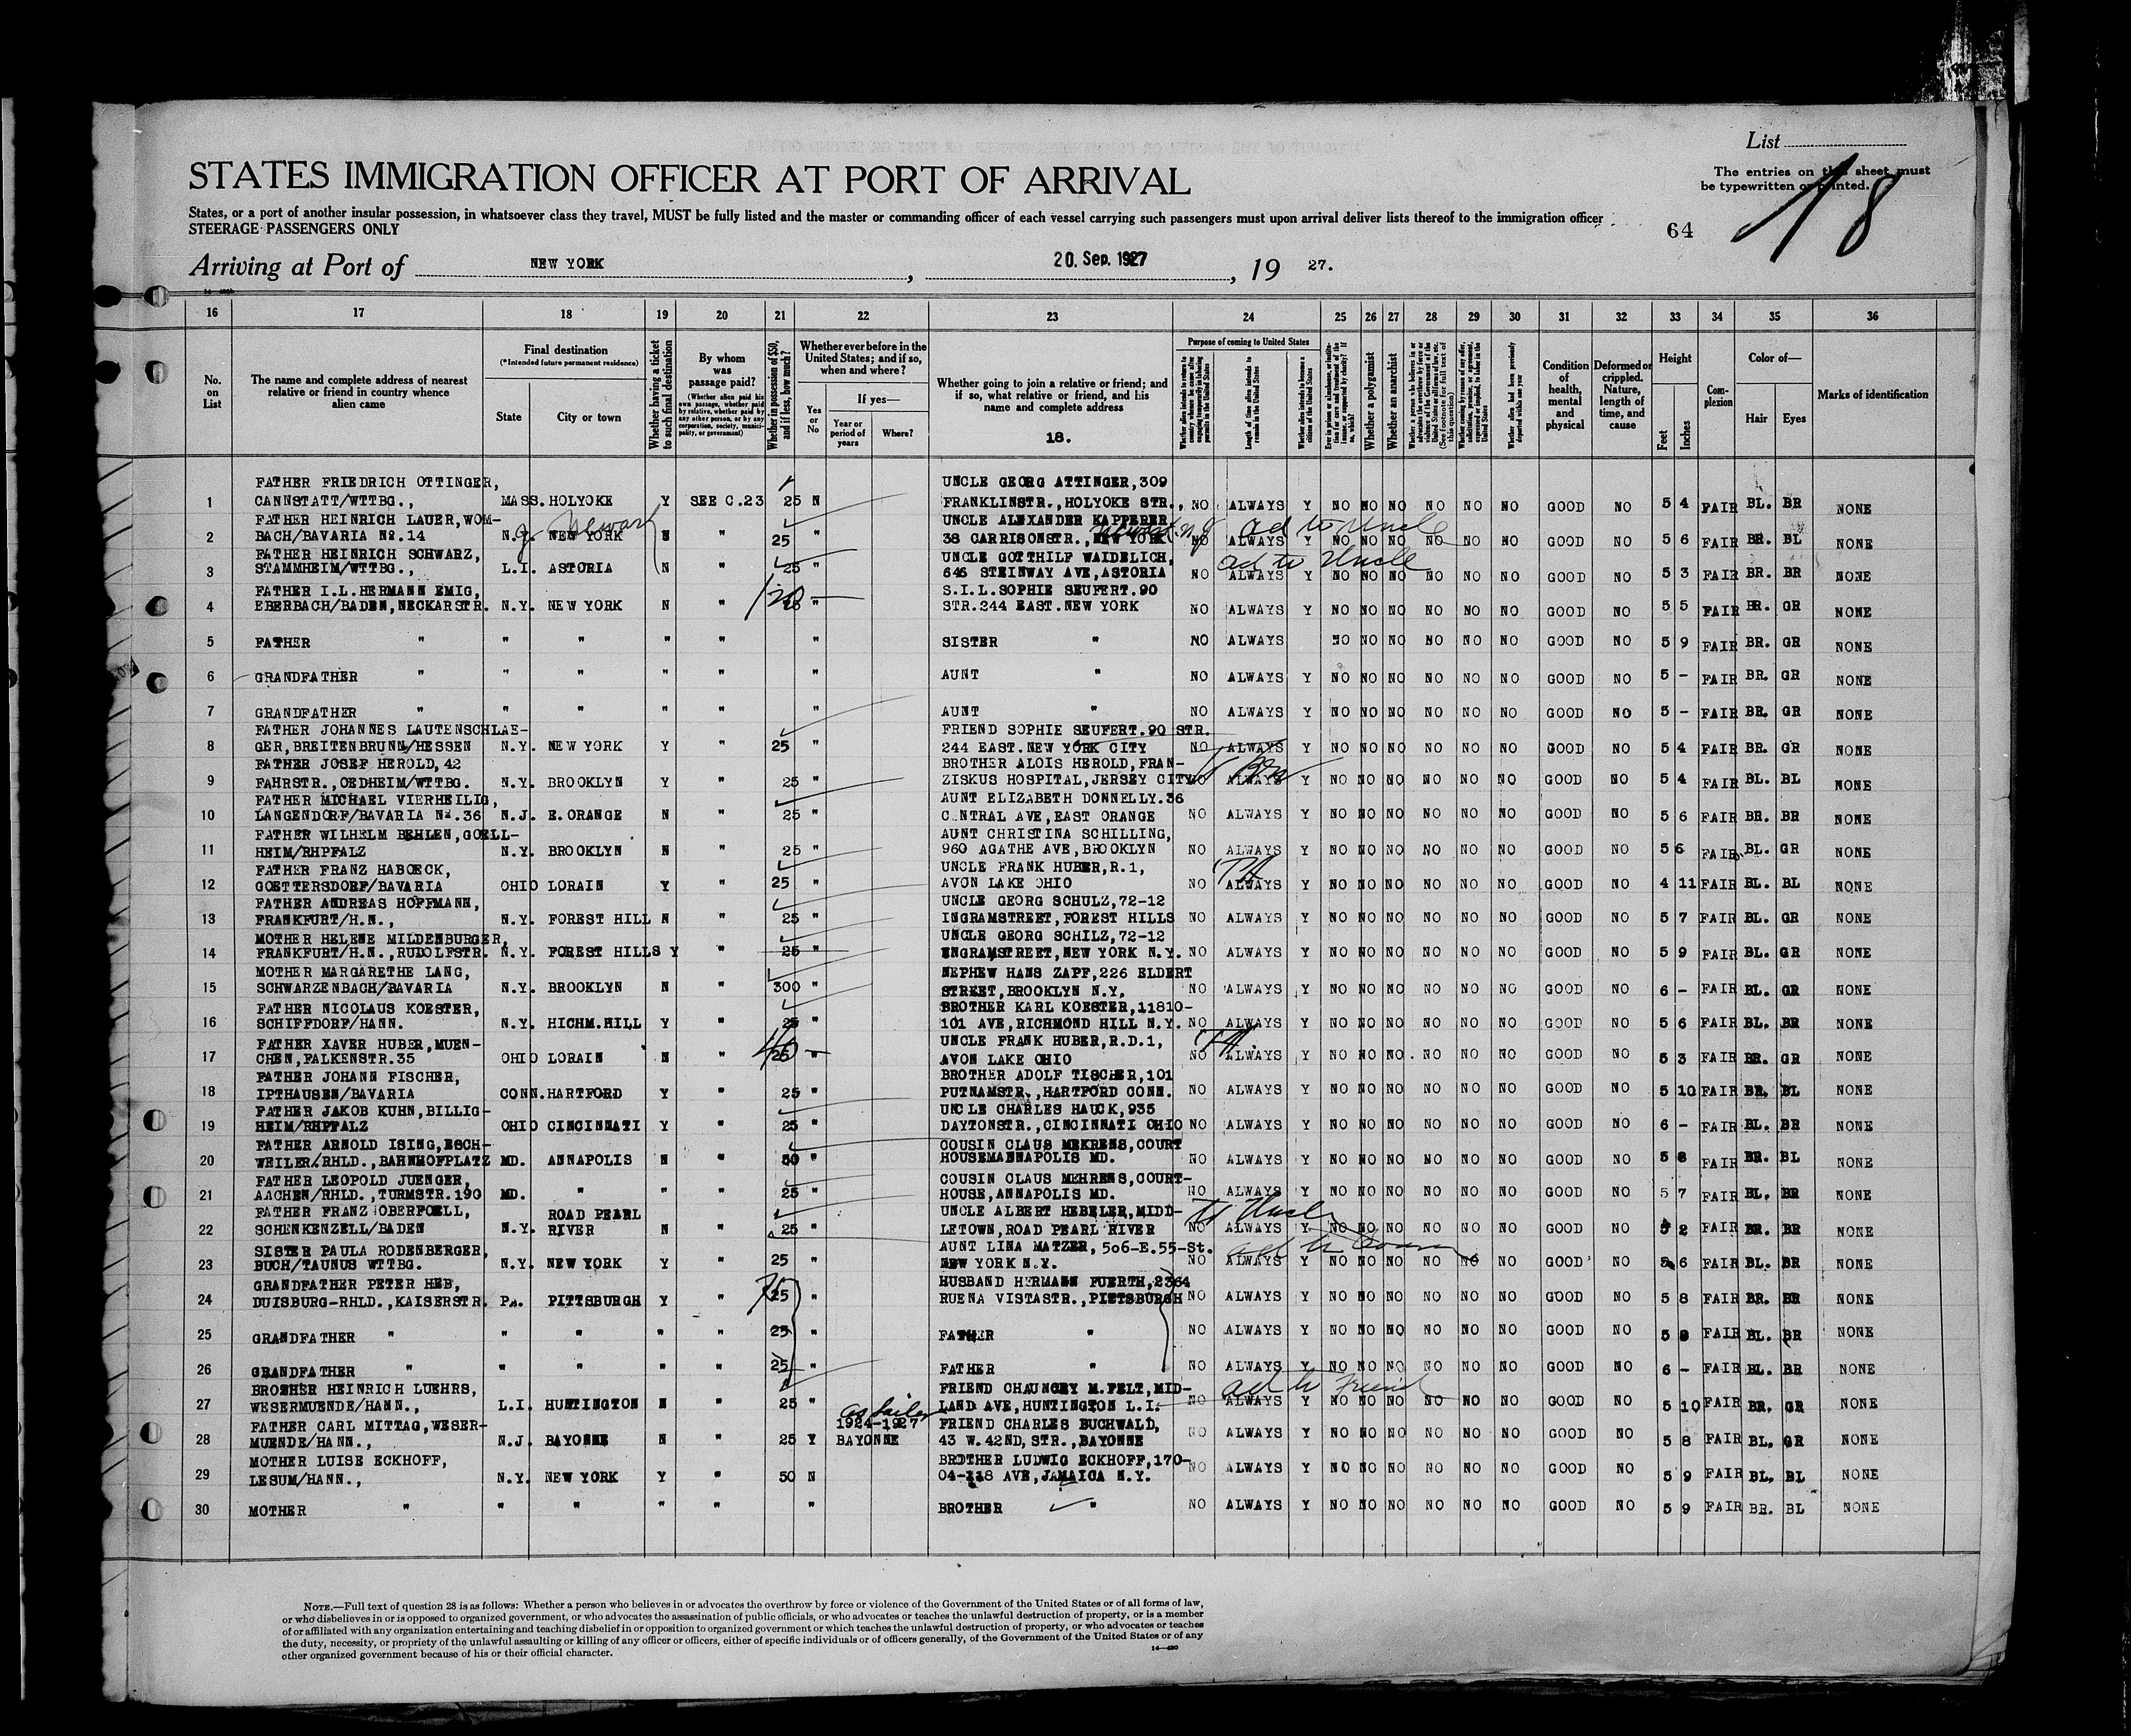 List
The entries on this sheet must
be typewritten or printed.
18
STATES IMMIGRATION OFFICER AT PORT OF ARRIVAL
States, or a port of another insular possession, in whatsoever class they travel, MUST be fully listed and the master or commanding officer of each vessel carrying such passengers must upon arrival deliver lists thereof to the immigration officer
STEERAGE PASSENGERS ONLY
64
Arriving at Port of NEW YORK, 20. Sep. 1927, 19 27.
16 17 18 19 20 21 22 23 24 25 26 27 28 29 30 31 32 33 34 35 36
No. on List
The name and complete address of nearest relative or friend in country whence alien came
Final destination
(*Intended future permanent residence)
State City or town
Whether having a ticket to such final destination
By whom was passage paid?
(Whether alien paid his own passage, whether paid by relative, whether paid by any other person, or by any corporation, society, municipality, or government)
Whether in possession of $50, and if less, how much?
Whether ever before in the United States; and if so, when and where?
Yes or No
If yes—
Year or period of years Where?
Whether going to join a relative or friend; and if so, what relative or friend, and his name and complete address
18.
Purpose of coming to United States
Whether alien intends to return to country whence he came after engaging temporarily in laboring pursuits in the United States
Length of time alien intends to remain in the United States
Whether alien intends to become a citizen of the United States
Whether a polygamist
Whether an anarchist
Whether alien had been previously deported within one year
Condition of health, mental and physical
Deformed or crippled. Nature, length of time, and cause
Height
Feet Inches
Complexion
Color of—
Hair Eyes
Marks of identification
FATHER FRIEDRICH OTTINGER, UNCLE GEORG ATTINGER,309
1 CANNSTATT/WTTBG., MASS. HOLYOKE Y SEE C.23 25 N FRANKLINSTR.,HOLYOKE STR., NO ALWAYS Y NO NO NO NO NO NO GOOD NO 5 4 FAIR BL. BR NONE
FATHER HEINRICH LAUER,WOM- UNCLE ALEXANDER KAPPERER
2 BACH/BAVARIA No.14 N.J. Newark NEW YORK N " 25 " 38 GARRISONSTR., NEW YORK Newark N.J. ad to Uncle NO ALWAYS Y NO NO NO NO NO NO GOOD NO 5 6 FAIR BR. BL NONE
FATHER HEINRICH SCHWARZ, UNCLE GOTTHILF WAIDELICH,
3 STAMMHEIM/WTTBG., L.I. ASTORIA N " 25 " 646 STEINWAY AVE,ASTORIA ad to Uncle NO ALWAYS Y NO NO NO NO NO NO GOOD NO 5 3 FAIR BR. BR NONE
FATHER I.L.HERMANN EMIG, S.I.L.SOPHIE SEUFERT.90
4 EBERBACH/BADEN,NECKARSTR. N.Y. NEW YORK N " " STR.244 EAST.NEW YORK NO ALWAYS Y NO NO NO NO NO NO GOOD NO 5 5 FAIR BR. GR NONE
5 FATHER " " " " " " SISTER " NO ALWAYS NO NO NO NO NO NO GOOD NO 5 9 FAIR BR. GR NONE
6 GRANDFATHER " " " " " " AUNT " NO ALWAYS Y NO NO NO NO NO NO GOOD NO 5 - FAIR BR. GR NONE
7 GRANDFATHER " " " " " " AUNT " NO ALWAYS Y NO NO NO NO NO NO GOOD NO 5 - FAIR BR. GR NONE
FATHER JOHANNES LAUTENSCHLAE- FRIEND SOPHIE SEUFERT.90 STR.
8 GER,BREITENBRUNN/HESSEN N.Y. NEW YORK Y " 25 " 244 EAST.NEW YORK CITY NO ALWAYS Y NO NO NO NO NO NO GOOD NO 5 4 FAIR BR. GR NONE
FATHER JOSEF HEROLD,42 BROTHER ALOIS HEROLD,FRAN-
9 FAHRSTR.,OEDHEIM/WTTBG. N.Y. BROOKLYN Y " 25 " ZISKUS HOSPITAL,JERSEY CITY NO ALWAYS Y NO NO NO NO NO NO GOOD NO 5 4 FAIR BL. BL NONE
FATHER MICHAEL VIERHEILIG, AUNT ELIZABETH DONNELLY.36
10 LANGENDORF/BAVARIA No.36 N.J. E.ORANGE N " 25 " CENTRAL AVE,EAST ORANGE NO ALWAYS Y NO NO NO NO NO NO GOOD NO 5 6 FAIR BR. BR NONE
FATHER WILHELM BEHLEN,GOELL- AUNT CHRISTINA SCHILLING,
11 HEIM/RHPFALZ N.Y. BROOKLYN N " 25 " 960 AGATHE AVE,BROOKLYN NO ALWAYS Y NO NO NO NO NO NO GOOD NO 5 6 FAIR BL. GR NONE
FATHER FRANZ HABOECK, UNCLE FRANK HUBER,R.1,
12 GOETTERSDORF/BAVARIA OHIO LORAIN Y " 25 " AVON LAKE OHIO NO ALWAYS Y NO NO NO NO NO NO GOOD NO 4 11 FAIR BL. BL NONE
FATHER ANDREAS HOFFMANN, UNCLE GEORG SCHULZ,72-12
13 FRANKFURT/H.N., N.Y. FOREST HILL N " 25 " INGRAMSTREET,FOREST HILLS NO ALWAYS Y NO NO NO NO NO NO GOOD NO 5 7 FAIR BL. GR NONE
MOTHER HELENE MILDENBURGER, UNCLE GEORG SCHILZ,72-12
14 FRANKFURT/H.N.,RUDOLFSTR. N.Y. FOREST HILLS Y " 25 " ENGRAMSTREET,NEW YORK N.Y. NO ALWAYS Y NO NO NO NO NO NO GOOD NO 5 9 FAIR BL. GR NONE
MOTHER MARGARETHE LANG, NEPHEW HANS ZAPF,226 ELDERT
15 SCHWARZENBACH/BAVARIA N.Y. BROOKLYN N " 300 " STREET,BROOKLYN N.Y, NO ALWAYS Y NO NO NO NO NO NO GOOD NO 6 - FAIR BL. GR NONE
FATHER NICOLAUS KOESTER, BROTHER KARL KOESTER,11810-
16 SCHIFFDORF/HANN. N.Y. HICHM.HILL Y " 25 " 101 AVE,RICHMOND HILL N.Y. NO ALWAYS Y NO NO NO NO NO NO GOOD NO 5 6 FAIR BL. BR NONE
FATHER XAVER HUBER,MUEN- UNCLE FRANK HUBER,R.D.1,
17 CHEN,FALKENSTR.35 OHIO LORAIN N " 25 " AVON LAKE OHIO NO ALWAYS Y NO NO NO NO NO NO GOOD NO 5 3 FAIR BR. GR NONE
FATHER JOHANN FISCHER, BROTHER ADOLF TISCHER,101
18 IPTHAUSEN/BAVARIA CONN. HARTFORD Y " 25 " PUTNAMSTR.,HARTFORD CONN. NO ALWAYS Y NO NO NO NO NO NO GOOD NO 5 10 FAIR BR. BL NONE
FATHER JAKOB KUHN,BILLIG- UNCLE CHARLES HAUCK,935
19 HEIM/RHPFALZ OHIO CINCINNATI Y " 25 " DAYTONSTR.,CINCINNATI OHIO NO ALWAYS Y NO NO NO NO NO NO GOOD NO 6 - FAIR BL. BR NONE
FATHER ARNOLD ISING,ESCH- COUSIN CLAUS MEKRENS,COURT
20 WEILER/RHLD.,BAHNHOFPLATZ MD. ANNAPOLIS N " 50 " HOUSEMANNAPOLIS MD. NO ALWAYS Y NO NO NO NO NO NO GOOD NO 5 8 FAIR BR. BL NONE
FATHER LEOPOLD JUENGER, COUSIN CLAUS MEHRENS,COURT-
21 AACHEN/RHLD.,TURMSTR.190 MD. " " 25 " HOUSE,ANNAPOLIS MD. NO ALWAYS Y NO NO NO NO NO NO GOOD NO 5 7 FAIR BL. BR NONE
FATHER FRANZ OBERFOELL, ROAD PEARL UNCLE ALBERT HEBELER,MIDD-
22 SCHENKENZELL/BADEN N.Y. RIVER N " 25 " LETOWN,ROAD PEARL RIVER NO ALWAYS Y NO NO NO NO NO NO GOOD NO 5 2 FAIR BR. BR NONE
SISTER PAULA RODENBERGER, AUNT LINA MATZER, 506-E.55-St.
23 BUCH/TAUNUS WTTBG. N.Y. NEW YORK Y " 25 " NEW YORK N.Y. NO ALWAYS Y NO NO NO NO NO NO GOOD NO 5 6 FAIR BL. BR NONE
GRANDFATHER PETER HEB, HUSBAND HERMANN FUERTH,2364
24 DUISBURG-RHLD.,KAISERSTR. PA. PITTSBURGH Y " 75 25 " RUENA VISTASTR.,PITTSBURGH NO ALWAYS Y NO NO NO NO NO NO GOOD NO 5 8 FAIR BR. BR NONE
25 GRANDFATHER " " " " " 25 " FATHER " NO ALWAYS Y NO NO NO NO NO NO GOOD NO 5 8 FAIR BL. BR NONE
26 GRANDFATHER " " " " " 25 " FATHER " NO ALWAYS Y NO NO NO NO NO NO GOOD NO 6 - FAIR BL. BR NONE
BROTHER HEINRICH LUEHRS, FRIEND CHAUNCEY M.FELT,MID- ad to Friend
27 WESERMUENDE/HANN., L.I. HUNTINGTON N " 25 " LAND AVE,HUNTINGTON L.I. NO ALWAYS Y NO NO NO NO NO NO GOOD NO 5 10 FAIR BR. GR NONE
as sailor
FATHER CARL MITTAG,WESER- 1924-1927 FRIEND CHARLES BUCHWALD,
28 MUENDE/HANN., N.J. BAYONNE N " 25 Y BAYONNE 43 W.42ND,STR.,BAYONNE NO ALWAYS Y NO NO NO NO NO NO GOOD NO 5 8 FAIR BL. GR NONE
MOTHER LUISE ECKHOFF, BROTHER LUDWIG ECKHOFF,170-
29 LESUM/HANN., N.Y. NEW YORK Y " 50 N 04-118 AVE,JAMAICA N.Y. NO ALWAYS Y NO NO NO NO NO NO GOOD NO 5 9 FAIR BL. BL NONE
30 MOTHER " " " " " " BROTHER " NO ALWAYS Y NO NO NO NO NO NO GOOD NO 5 9 FAIR BR. BL NONE
NOTE.—Full text of question 28 is as follows: Whether a person who believes in or advocates the overthrow by force or violence of the Government of the United States or of all forms of law,
or who disbelieves in or is opposed to organized government, or who advocates the assassination of public officials, or who advocates or teaches the unlawful destruction of property, or is a member
of or affiliated with any organization entertaining and teaching disbelief in or opposition to organized government or which teaches the unlawful destruction of property, or who advocates or teaches
the duty, necessity, or propriety of the unlawful assaulting or killing of any officer or officers, either of specific individuals or of officers generally, of the Government of the United States or of any
other organized government because of his or their official character.